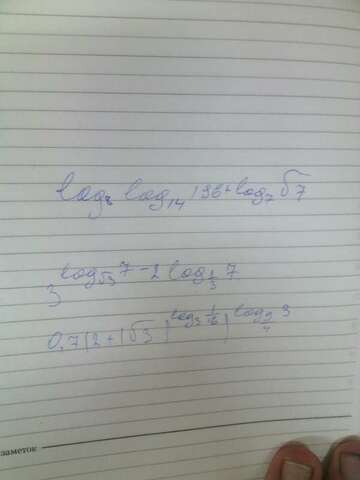 log₈ log₁₄ 196 + log₇ √7
3^(log_√3 7 − 2 log_(1/3) 7)
0,7(2+(√3)^(log₃ 1/16))^(log_(9/4) 3)
заметок